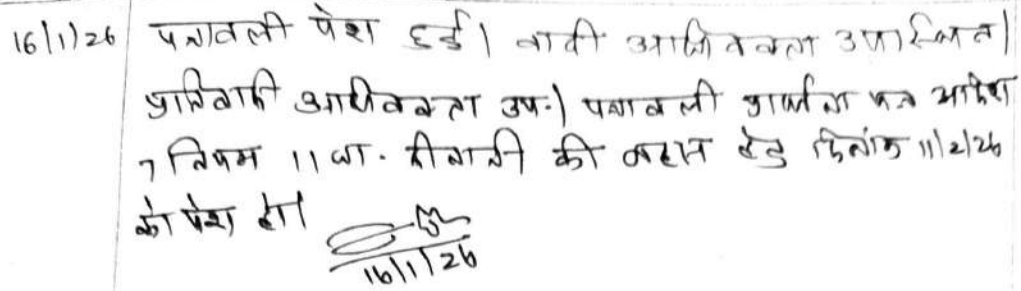 16/1/26 पत्रावली पेश हुई। वादी अधिवक्ता उपस्थित।
प्रतिवादी अधिवक्ता उप.। पत्रावली प्रार्थना पत्र आदेश
7 नियम 11 जा. दीवानी की बहस हेतु दिनांक 11/2/26
को पेश हो।
16/1/26